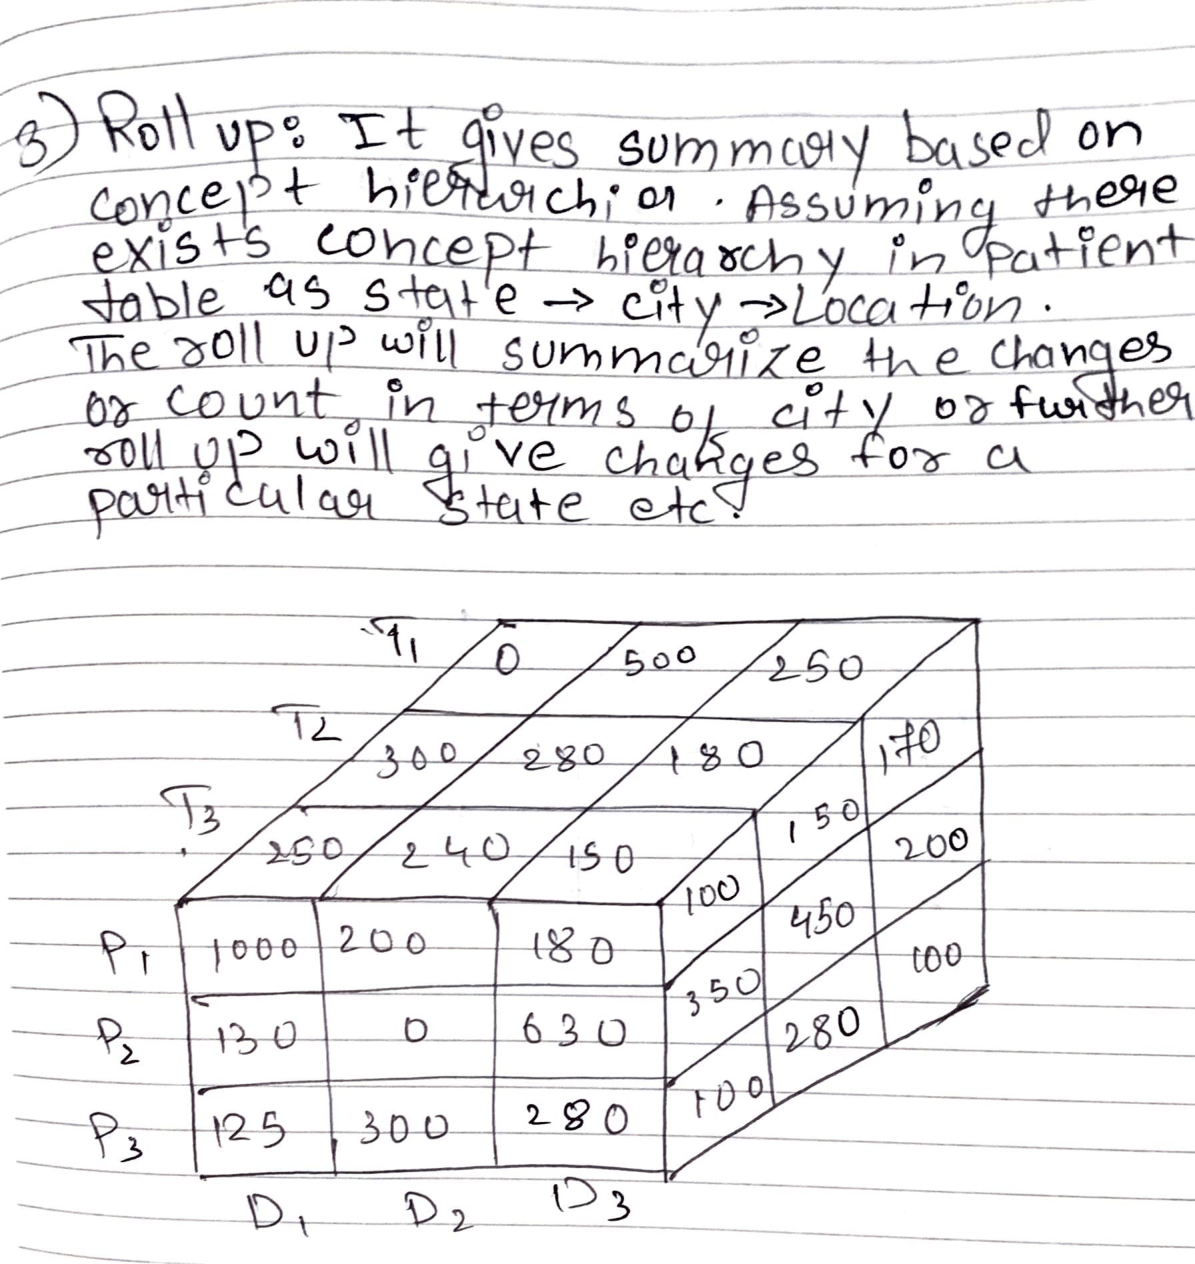 3) Roll up: It gives summary based on
concept hierarchies. Assuming there
exists concept hierarchy in patient
table as state → city → Location.
The roll up will summarize the changes
or count in terms of city or further
roll up will give changes for a
particular state etc.
T1 0 500 250
T2 300 280 180 170
T3 250 240 150 150 200
100 450 100
P1 1000 200 180 350 280
P2 130 0 630 100
P3 125 300 280
D1 D2 D3